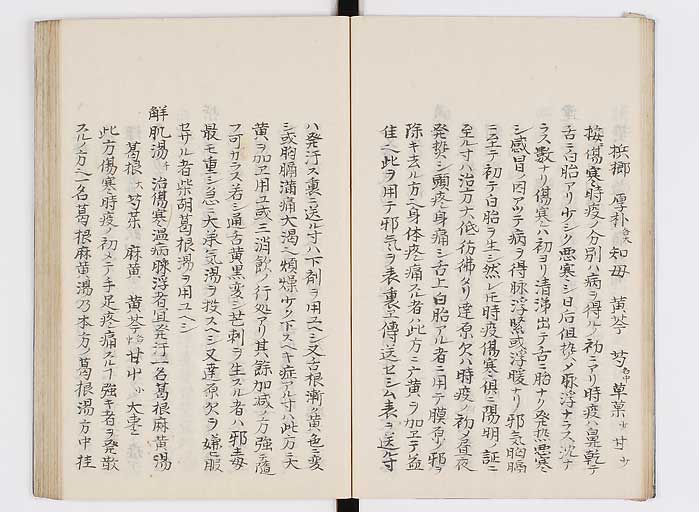 檳榔 厚朴 知母 黄芩 芍 草菓 甘 少
按傷寒時疫ノ分別ハ病ヲ得ルノ初ニアリ時疫ハ鼻乾テ
舌ニ白胎アリ少シク悪寒シ日后但熱ノメ脉浮ナラス沈ナ
ラス數ナリ傷寒ハ初ヨリ清涕出テ舌ニ胎ナク発熱悪寒
シ感冒ノ因アツテ病ヲ得脉浮緊或浮暖ナリ邪気胸膈
ニ至テ初テ白胎ヲ生シ然レ𪜈時疫傷寒俱ニ陽明ノ証ニ
至ル寸ハ治方大低彷彿タリ達原欠ハ時疫ノ初メ昼夜
発熱シ頭疼身痛シ舌上白胎アル者ニ用テ膜原ノ邪ヲ
除キ去ル方也身体疼痛スル者ハ此方ニ黄ヲ加エテ益
佳也此ヲ用テ邪気ヲ表裏ニ傳送セシム表ニ送ル寸
ハ発汗ス裏ニ送ル寸ハ下剤ヲ用ユヘシ又舌根漸ク黄色ニ変
シ或胸膈満痛大渇シ煩燥少ク下スヘキ症アル寸ハ此方ニ大
黄ヲ加エ用ユ或三消飲ノ行処アリ其餘加减ノ方強テ隨
フ可カラス若シ通舌黄黒変シ芒刺ヲ生スル者ハ邪毒
最モ重シ急ニ大承気湯ヲ投スヘシ又達原欠ヲ嫌ヒ服
セサル者柴胡葛根湯ヲ用ユヘシ
解肌湯 治傷寒温病脉浮者宜発汗一名葛根麻黄湯
葛根 大 芍薬 麻黄 黄芩 甘 中 大枣
此方傷寒時疫ノ初メテ手足疼痛スル 強キ者ヲ発散
スルノ方也一名葛根麻黄湯乃本方ノ葛根湯方中桂